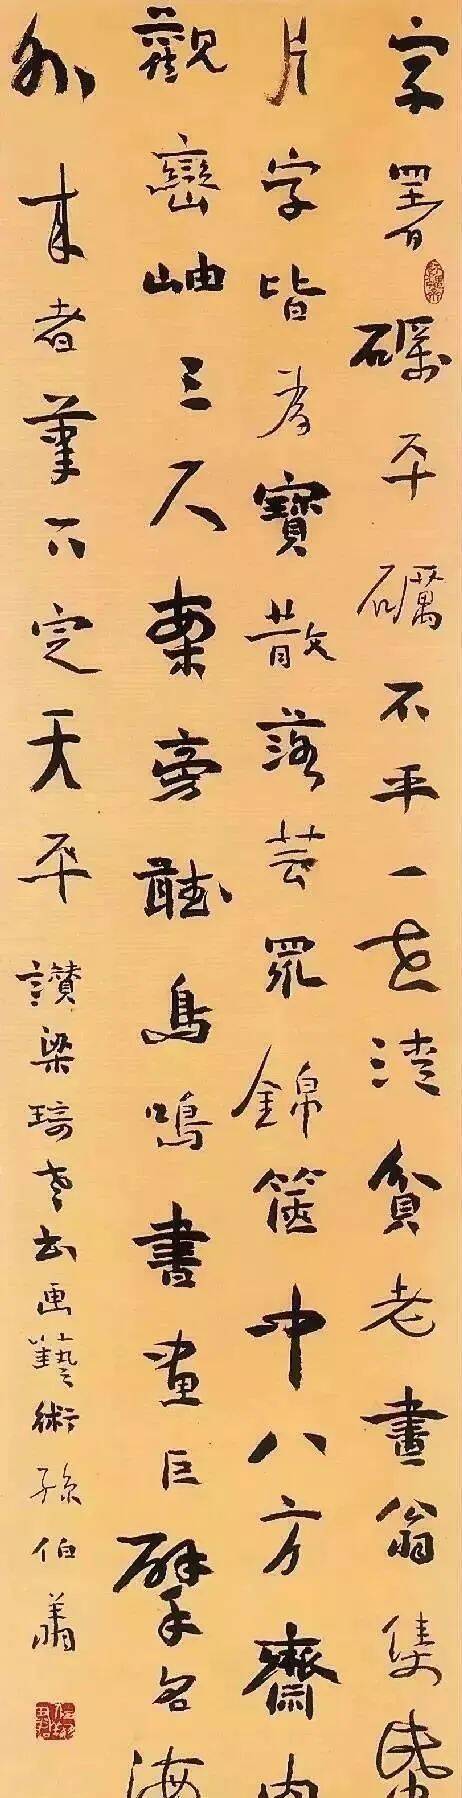 字署礪平礪不平一世清貧老畫翁隻帋
片字皆為寶散落芸眾錦篋中八方齋內
觀巒岫三尺案旁聽鳥鳴書畫巨擘名海
外來者筆下定天平
讚梁琦老書画藝術孫伯翔